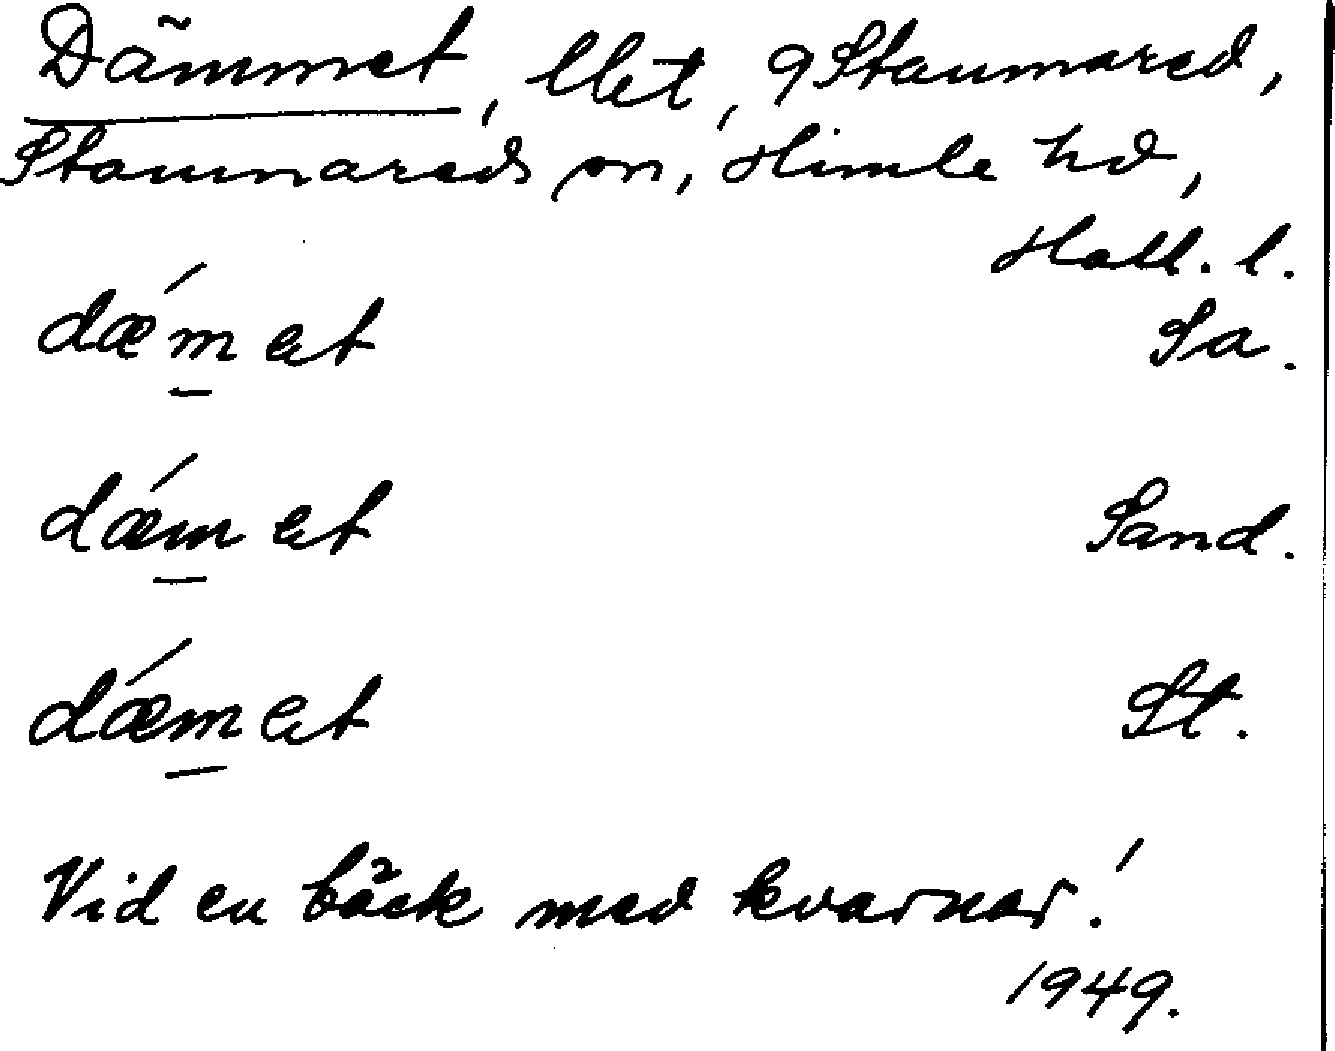 Dämmet, llet, 9 Stamnared,
Stamnareds sn, Himle hd,
Hall. l.
dǽmet Sa.
dǽmet Sand.
dǽmet St.
Vid en bäck med kvarnar!
1949.